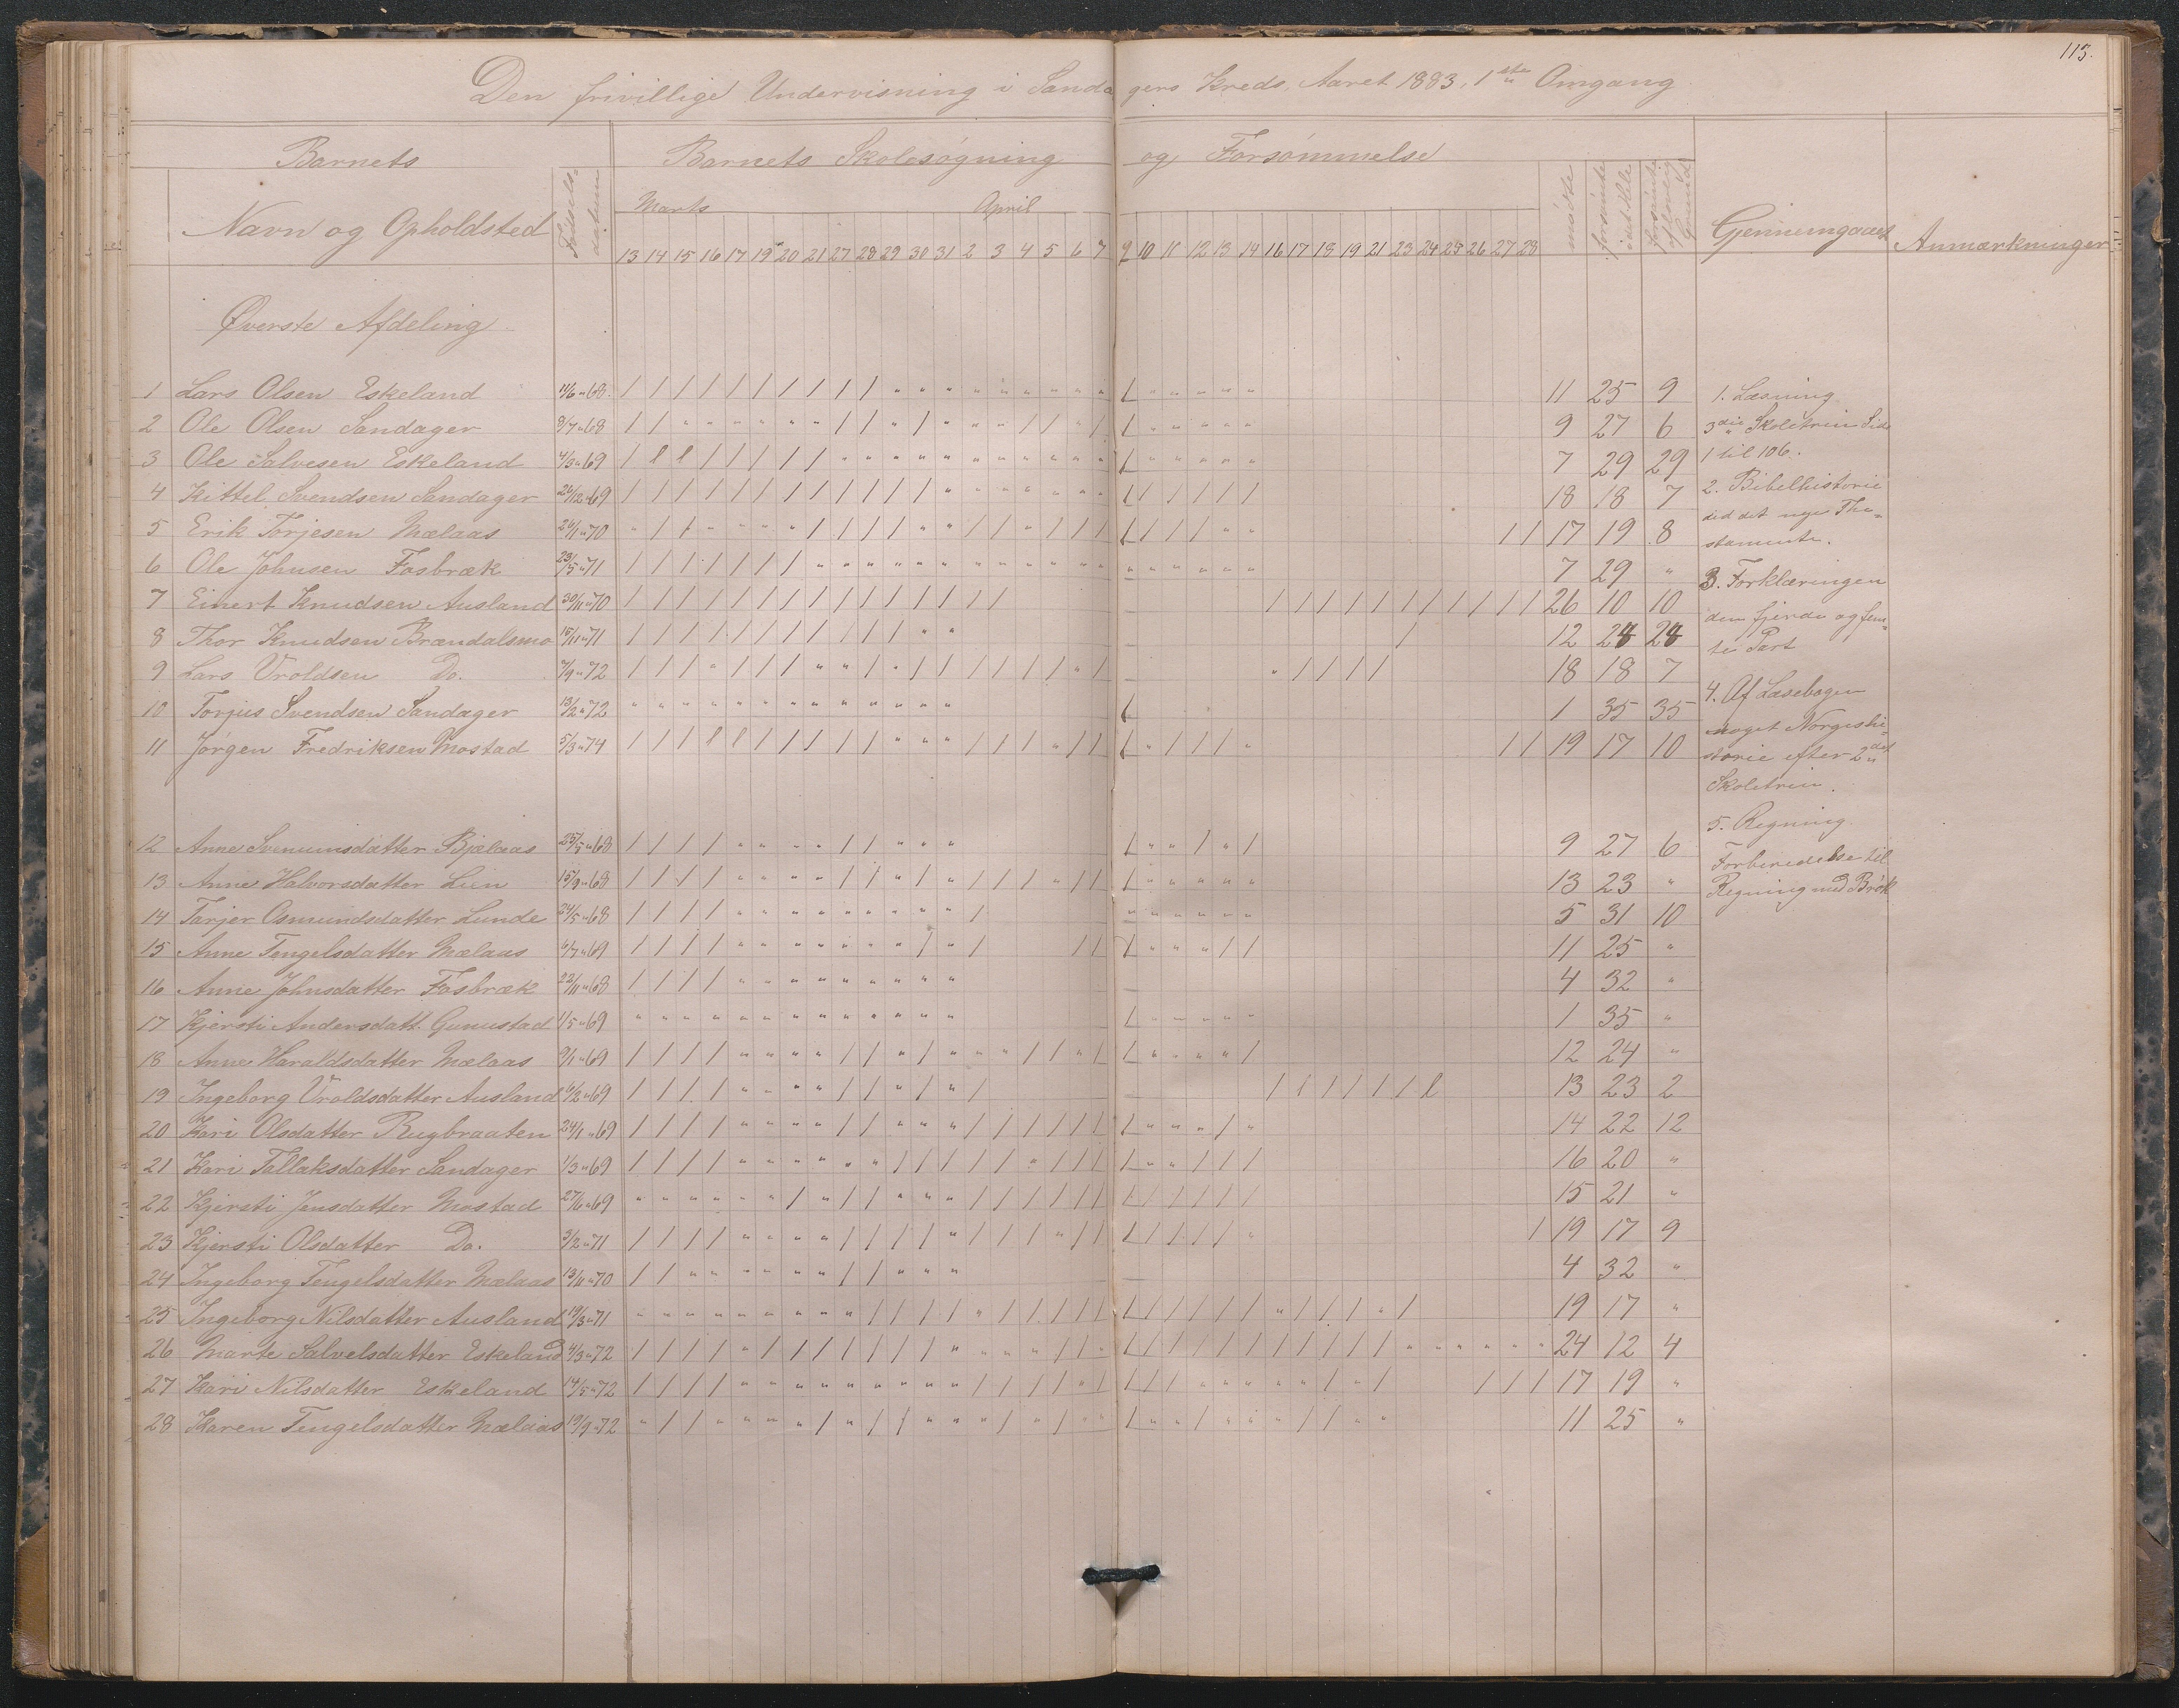 113.
Den frivillige Undervisning i Sandagers Kreds, Aaret 1883. 1ste Omgang
Barnets
Barnets Skolesøgning og Forsømmelse
Navn og Opholdsted
Fødselsdatum
Marts April
mødte
forsømte idet Hele
forsømte af lovlig Grund
Gjennemgaaet
Anmærkninger
13 14 15 16 17 19 20 21 27 28 29 30 31 2 3 4 5 6 7 9 10 11 12 13 14 16 17 18 19 21 23 24 25 26 27 28
Øverste Afdeling
1 Lars Olsen Eskeland 11/6 " 68 11 25 9
2 Ole Olsen Sandager 8/7 " 68 9 27 6
3 Ole Salvesen Eskeland 4/3 " 69 7 29 29
4 Kittel Svendsen Sandager 26/12 " 69 18 18 7
5 Erik Torjesen Mælaas 26/1 " 70 17 19 8
6 Ole Johnsen Fosbræk 23/5 " 71 7 29 "
7 Einert Knudsen Ausland 30/11 " 70 26 10 10
8 Thor Knudsen Brændalsmo 15/11 " 71 12 24 24
9 Lars Vroldsen Do. 7/9 " 72 18 18 7
10 Torjus Svendsen Sandager 13/2 " 72 1 35 35
11 Jørgen Fredriksen Mostad 5/3 " 74 19 17 10
12 Anne Svenumsdatter Bjælaas 25/5 " 68 9 27 6
13 Anne Halvorsdatter Lien 15/9 " 68 13 23 "
14 Tarjer Osmundsdatter Lunde 24/5 " 68 5 31 10
15 Anne Tengelsdatter Mælaas 6/7 " 69 11 25 "
16 Anne Johnsdatter Fosbræk 22/11 " 68 4 32 "
17 Kjersti Andersdatt. Gunustad 1/5 " 69 1 35 "
18 Anne Haraldsdatter Mælaas 9/1 " 69 12 24 "
19 Ingeborg Vroldsdatter Ausland 6/2 " 69 13 23 2
20 Kari Olsdatter Rugbraaten 24/1 " 69 14 22 12
21 Kari Tallaksdatter Sandager 1/3 " 69 16 20 "
22 Kjersti Jensdatter Mostad 27/6 " 69 15 21 "
23 Kjersti Olsdatter Do. 3/2 " 71 19 17 9
24 Ingeborg Tengelsdatter Mælaas 13/11 " 70 4 32 "
25 Ingeborg Nilsdatter Ausland 19/3 " 71 19 17 "
26 Marte Salvelsdatter Eskeland 4/3 " 72 24 12 4
27 Kari Nilsdatter Eskeland 14/5 " 72 17 19 "
28 Karen Tengelsdatter Mælaas 19/9 " 72 11 25 "
1. Læsning
3die Skoletrin Side
1 til 106.
2. Bibelhistorie
det nye The-
stamente.
3. Forklæringen
den fjerde og fem-
te Part
4. Af Læsebogen
noget Norgeshi-
storie efter 2det
Skoletrin.
5. Regning
Forberedelse til
Regning med Brøk